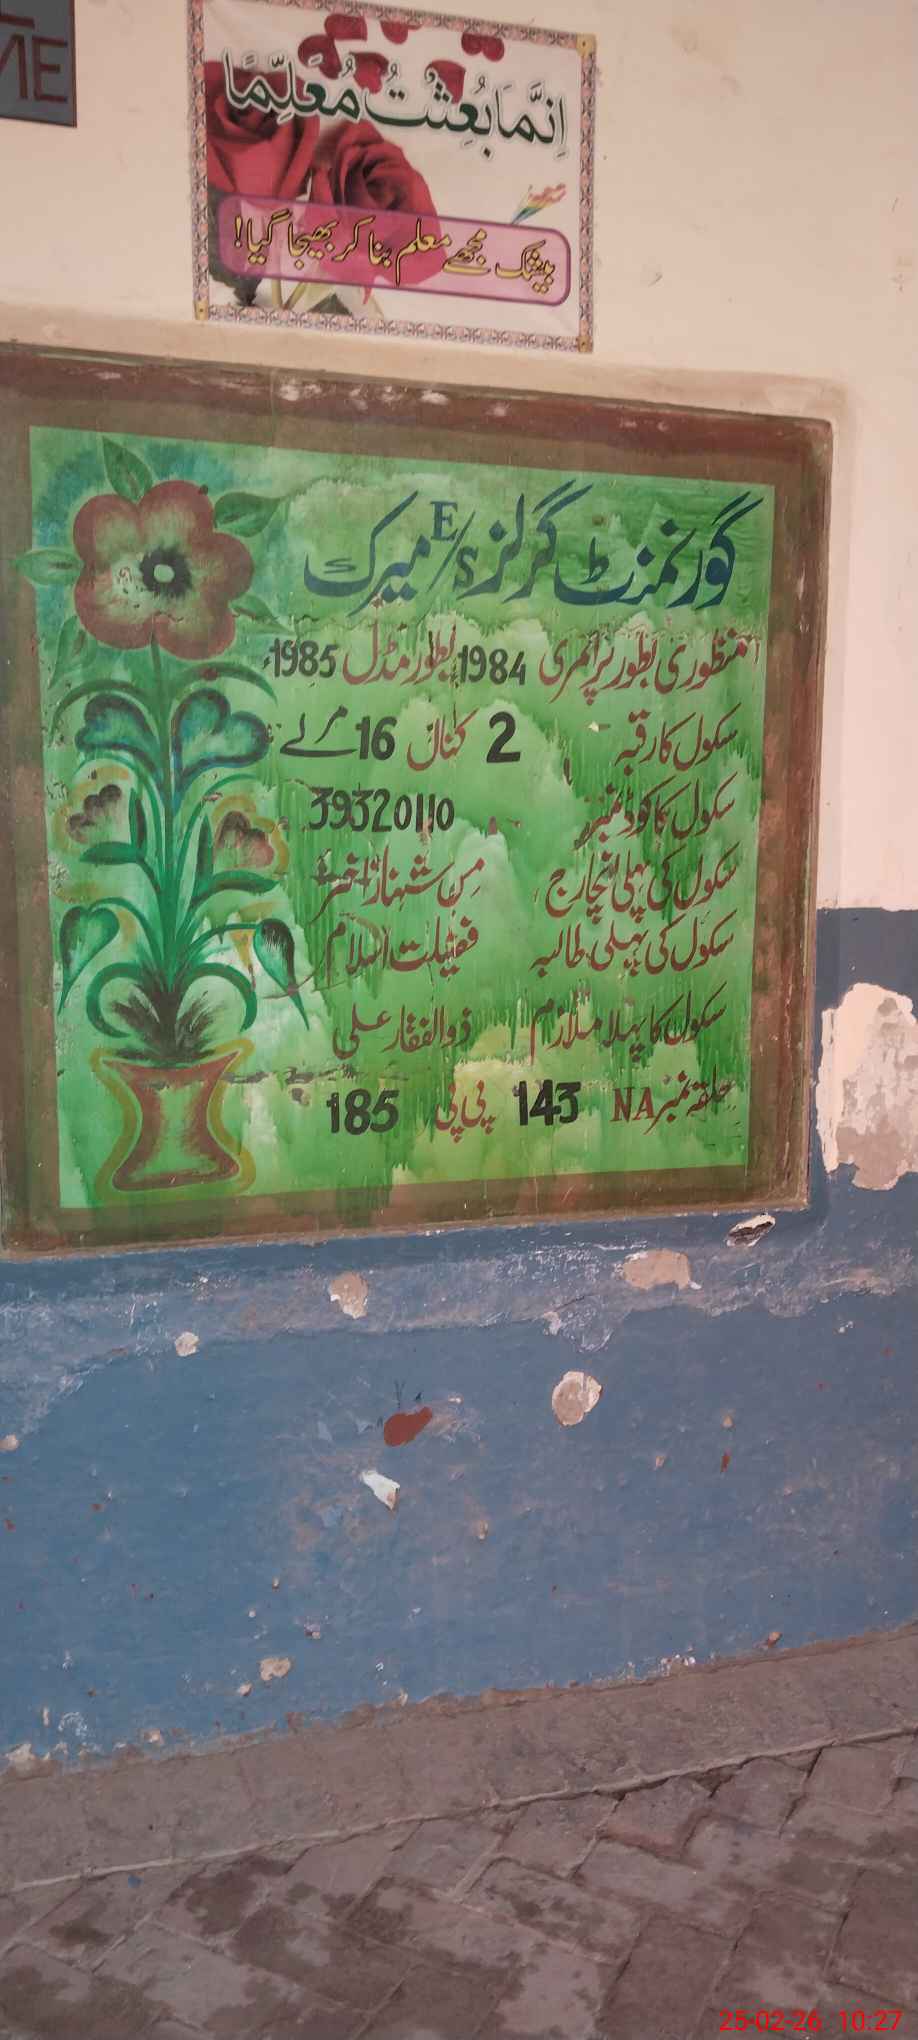 NE
اِنَّمَا بُعِثْتُ مُعَلِّمًا
بیشک مجھے معلم بنا کر بھیجا گیا!
گورنمنٹ گرلز E/S میرک
منظوری بطور پرائمری 1984 بطور مڈل 1985
سکول کا رقبہ 2 کنال 16 مرلے
سکول کا کوڈ نمبر 39320110
سکول کی پہلی انچارج مِس شہناز اختر
سکول کی پہلی طالبہ فضیلت اسلام
سکول کا پہلا ملازم ذوالفقار علی
حلقہ نمبر NA 143 پی پی 185
25-02-26 10:27